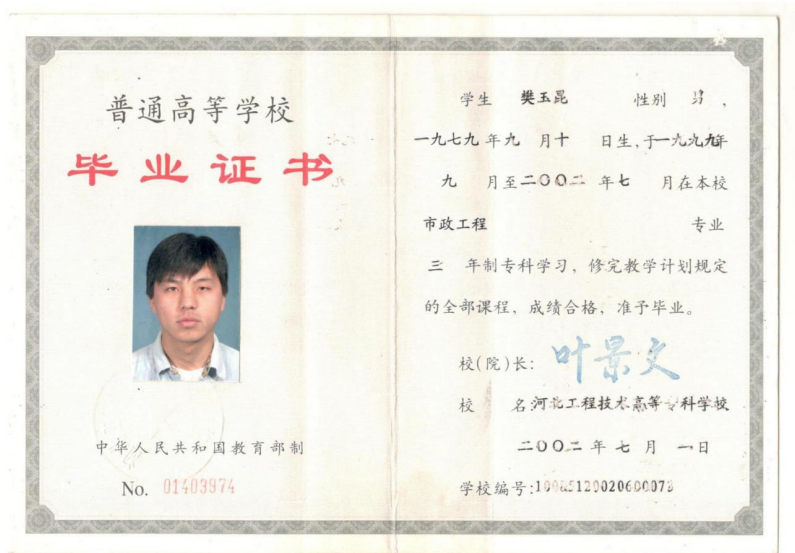 普通高等学校
毕业证书
中华人民共和国教育部制
No. 01403974
学生 樊玉昆 性别 男，
一九七九年九月十日生，于一九九九年
九月至二〇〇二年七月在本校
市政工程 专业
三年制专科学习，修完教学计划规定
的全部课程，成绩合格，准予毕业。
校(院)长：叶景文
校 名：河北工程技术高等专科学校
二〇〇二年七月一日
学校编号：